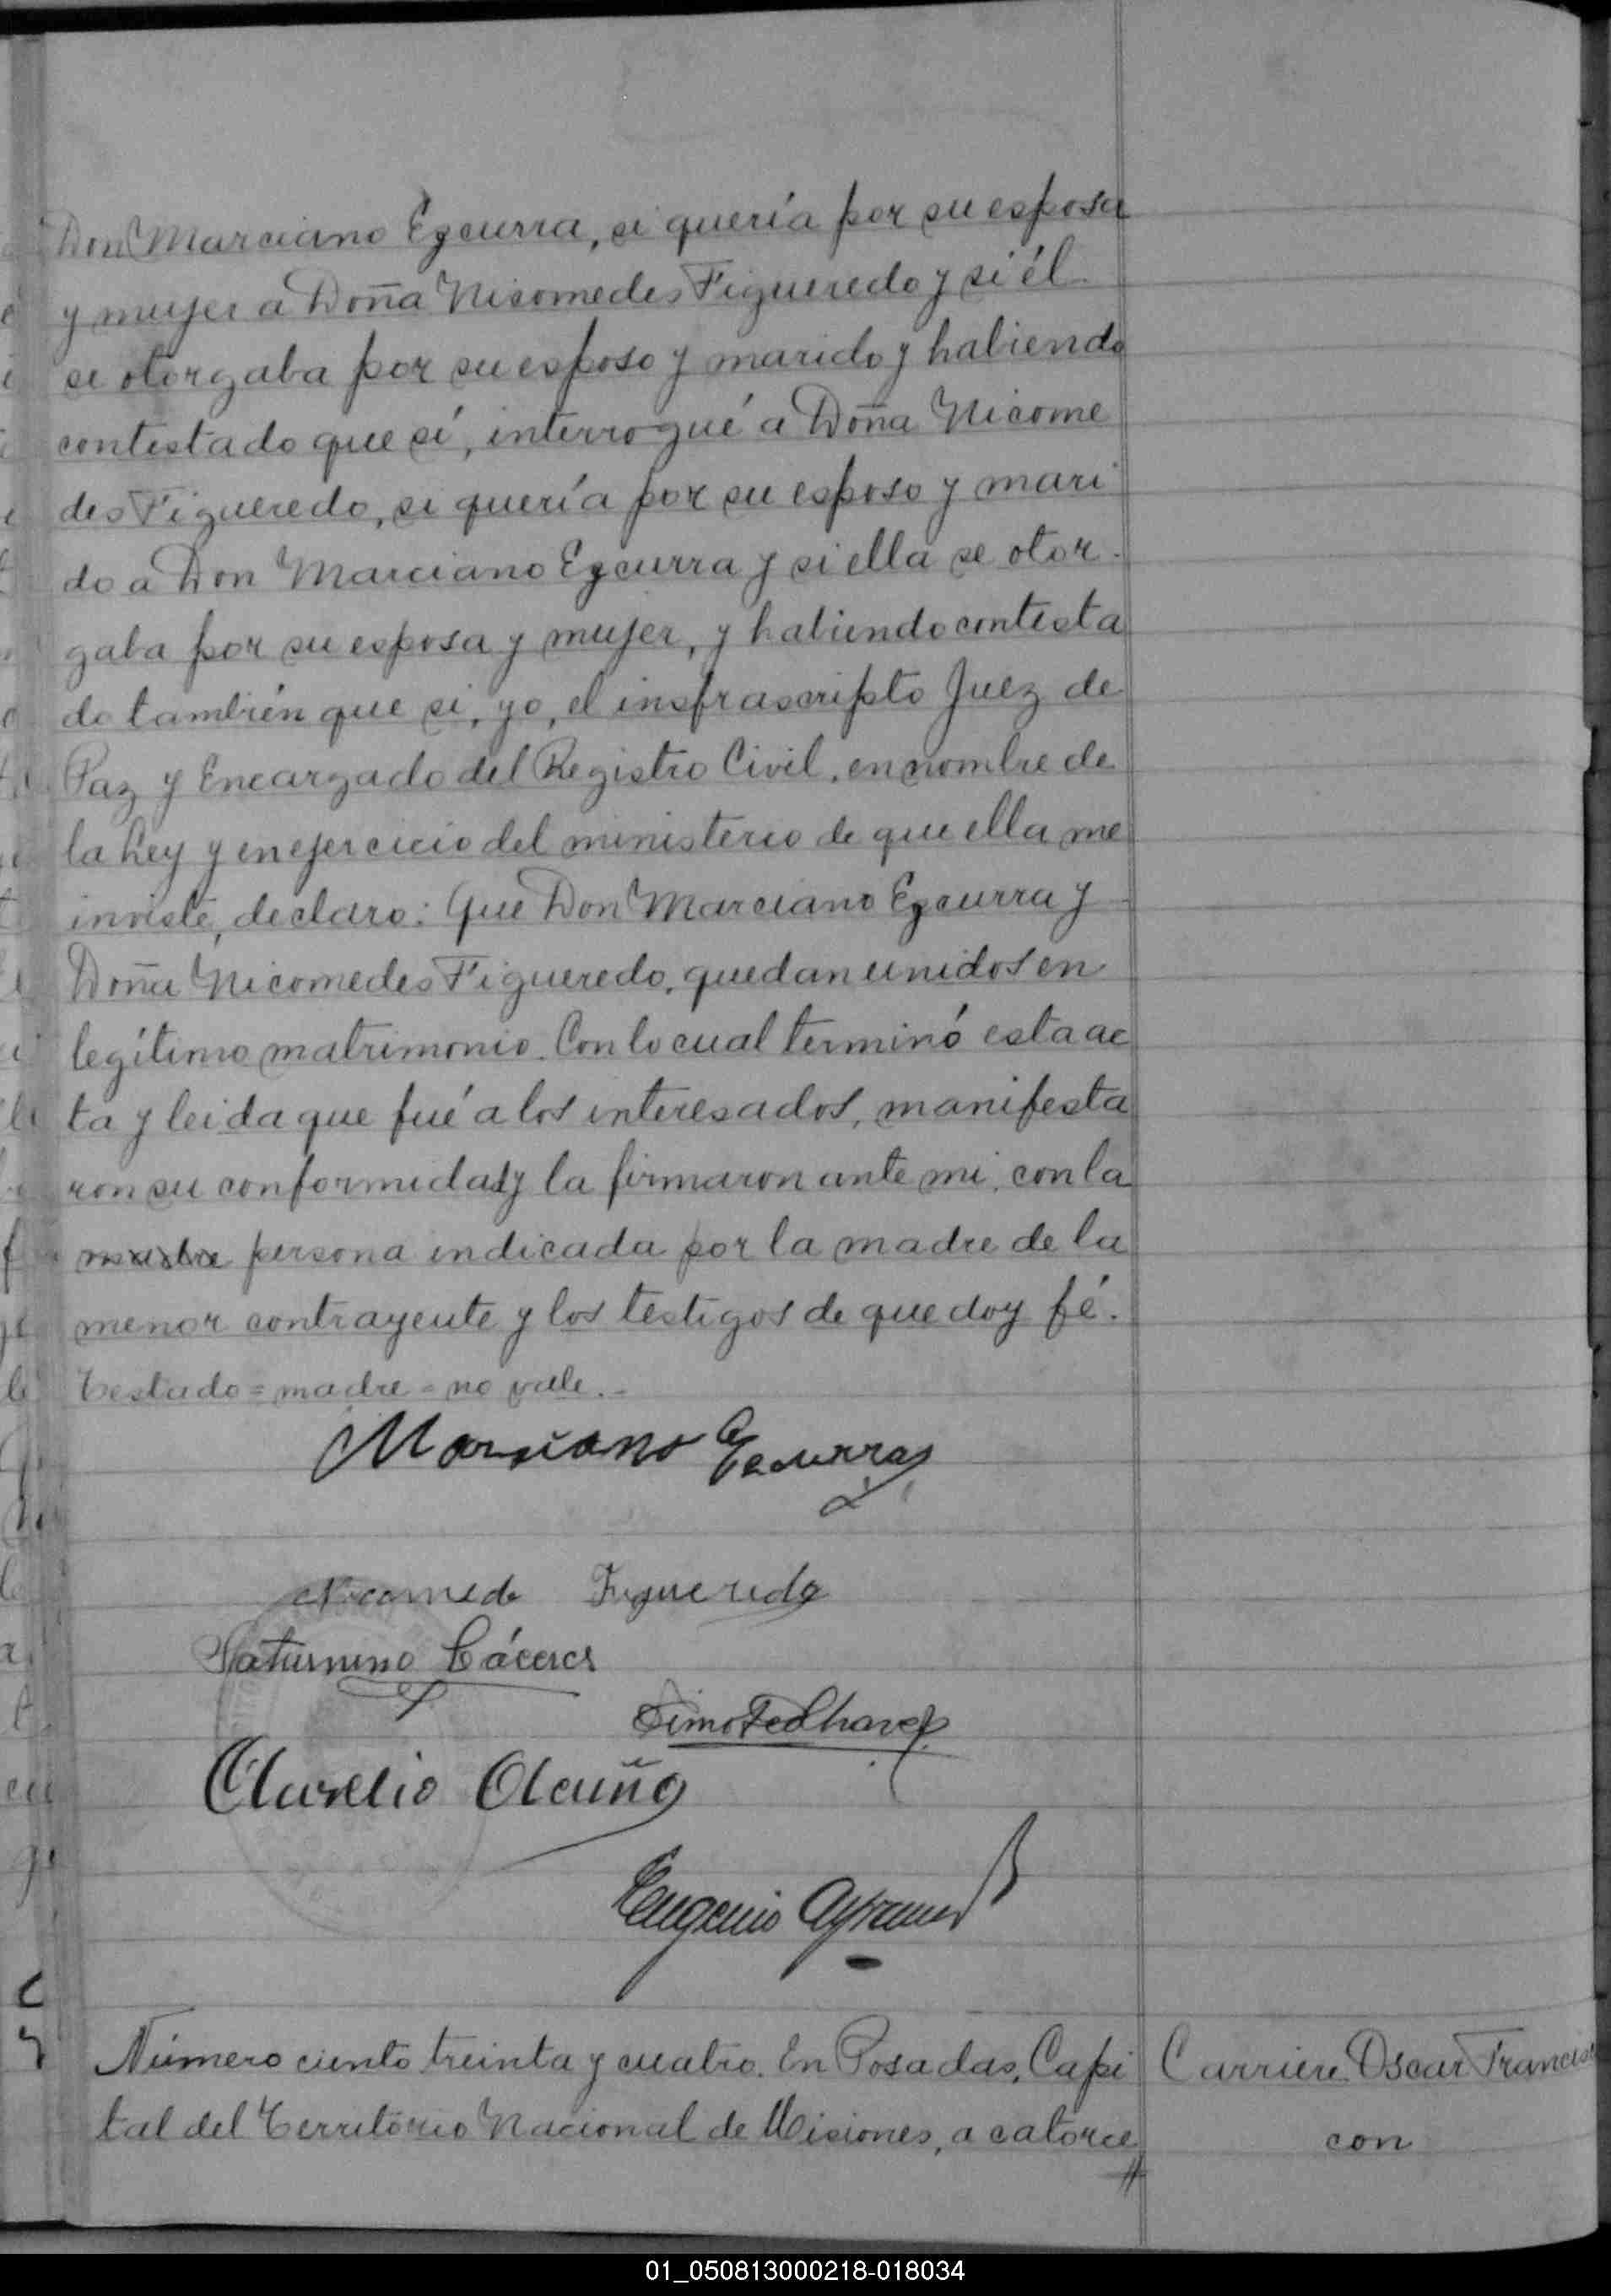 Don Marciano Ezcurra, si quería por su esposa
y mujer a Doña Nicomedes Figueredo y si él
se otorgaba por su esposo y marido y habiendo
contestado que sí, interrogué a Doña Nicome
des Figueredo, si quería por su esposo y mari
do a Don Marciano Ezcurra y si ella se otor-
gaba por su esposa y mujer, y habiendo contesta
do también que si, yo, el insfrascripto Juez de
Paz y Encargado del Registro Civil, en nombre de
la Ley y en ejercicio del ministerio de que ella me
inviste, declaro: Que Don Marciano Ezcurra y
Doña Nicomedes Figueredo, quedan unidos en
legítimo matrimonio. Con lo cual terminó esta ac
ta y leida que fué a los interesados, manifesta
ron su conformidad y la firmaron ante mi, con la
madre persona indicada por la madre de la
menor contrayente y los testigos de que doy fé.
Testado = madre = no vale.-
Marciano Ezcurra
Nicomede Figueredo
Saturnino Cáceres
Timoteo Chavez
Aurelio Acuña
Eugenio
Número ciento treinta y cuatro. En Posadas, Capi
tal del Territorio Nacional de Misiones, a catorce
//
Carriere Oscar Francisc
con
01_050813000218-018034